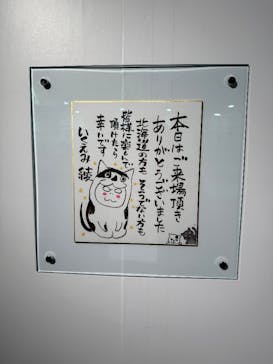 本日はご来場頂き
ありがとうございました
北海道の方もそうでない方も
皆様に楽しんで
頂けたら
幸いです
いくえみ綾